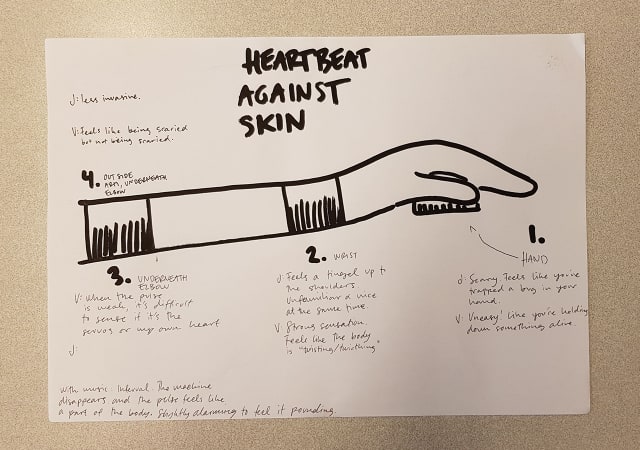 HEARTBEAT
AGAINST
SKIN
J: less invasive.
V: Feels like being scared
but not being scared.
4. OUTSIDE
ARM, UNDERNEATH
ELBOW
1.
HAND
J: Scary. Feels like you've
trapped a bug in your
hand.
V: Uneasy! Like you're holding
down something alive.
2. WRIST
J: Feels a tingel up to
the shoulders
Unfamiliar & nice
at the same time.
V Strong sensation.
Feels like the body
is "twisting/twitching"
3. UNDERNEATH
ELBOW
V: When the pulse
is weak, it's difficult
to sense if it's the
servos or my own heart
J:
With music. Interval. The machine
disappears and the pulse feels like
a part of the body. Slightly alarming to feel it pounding.